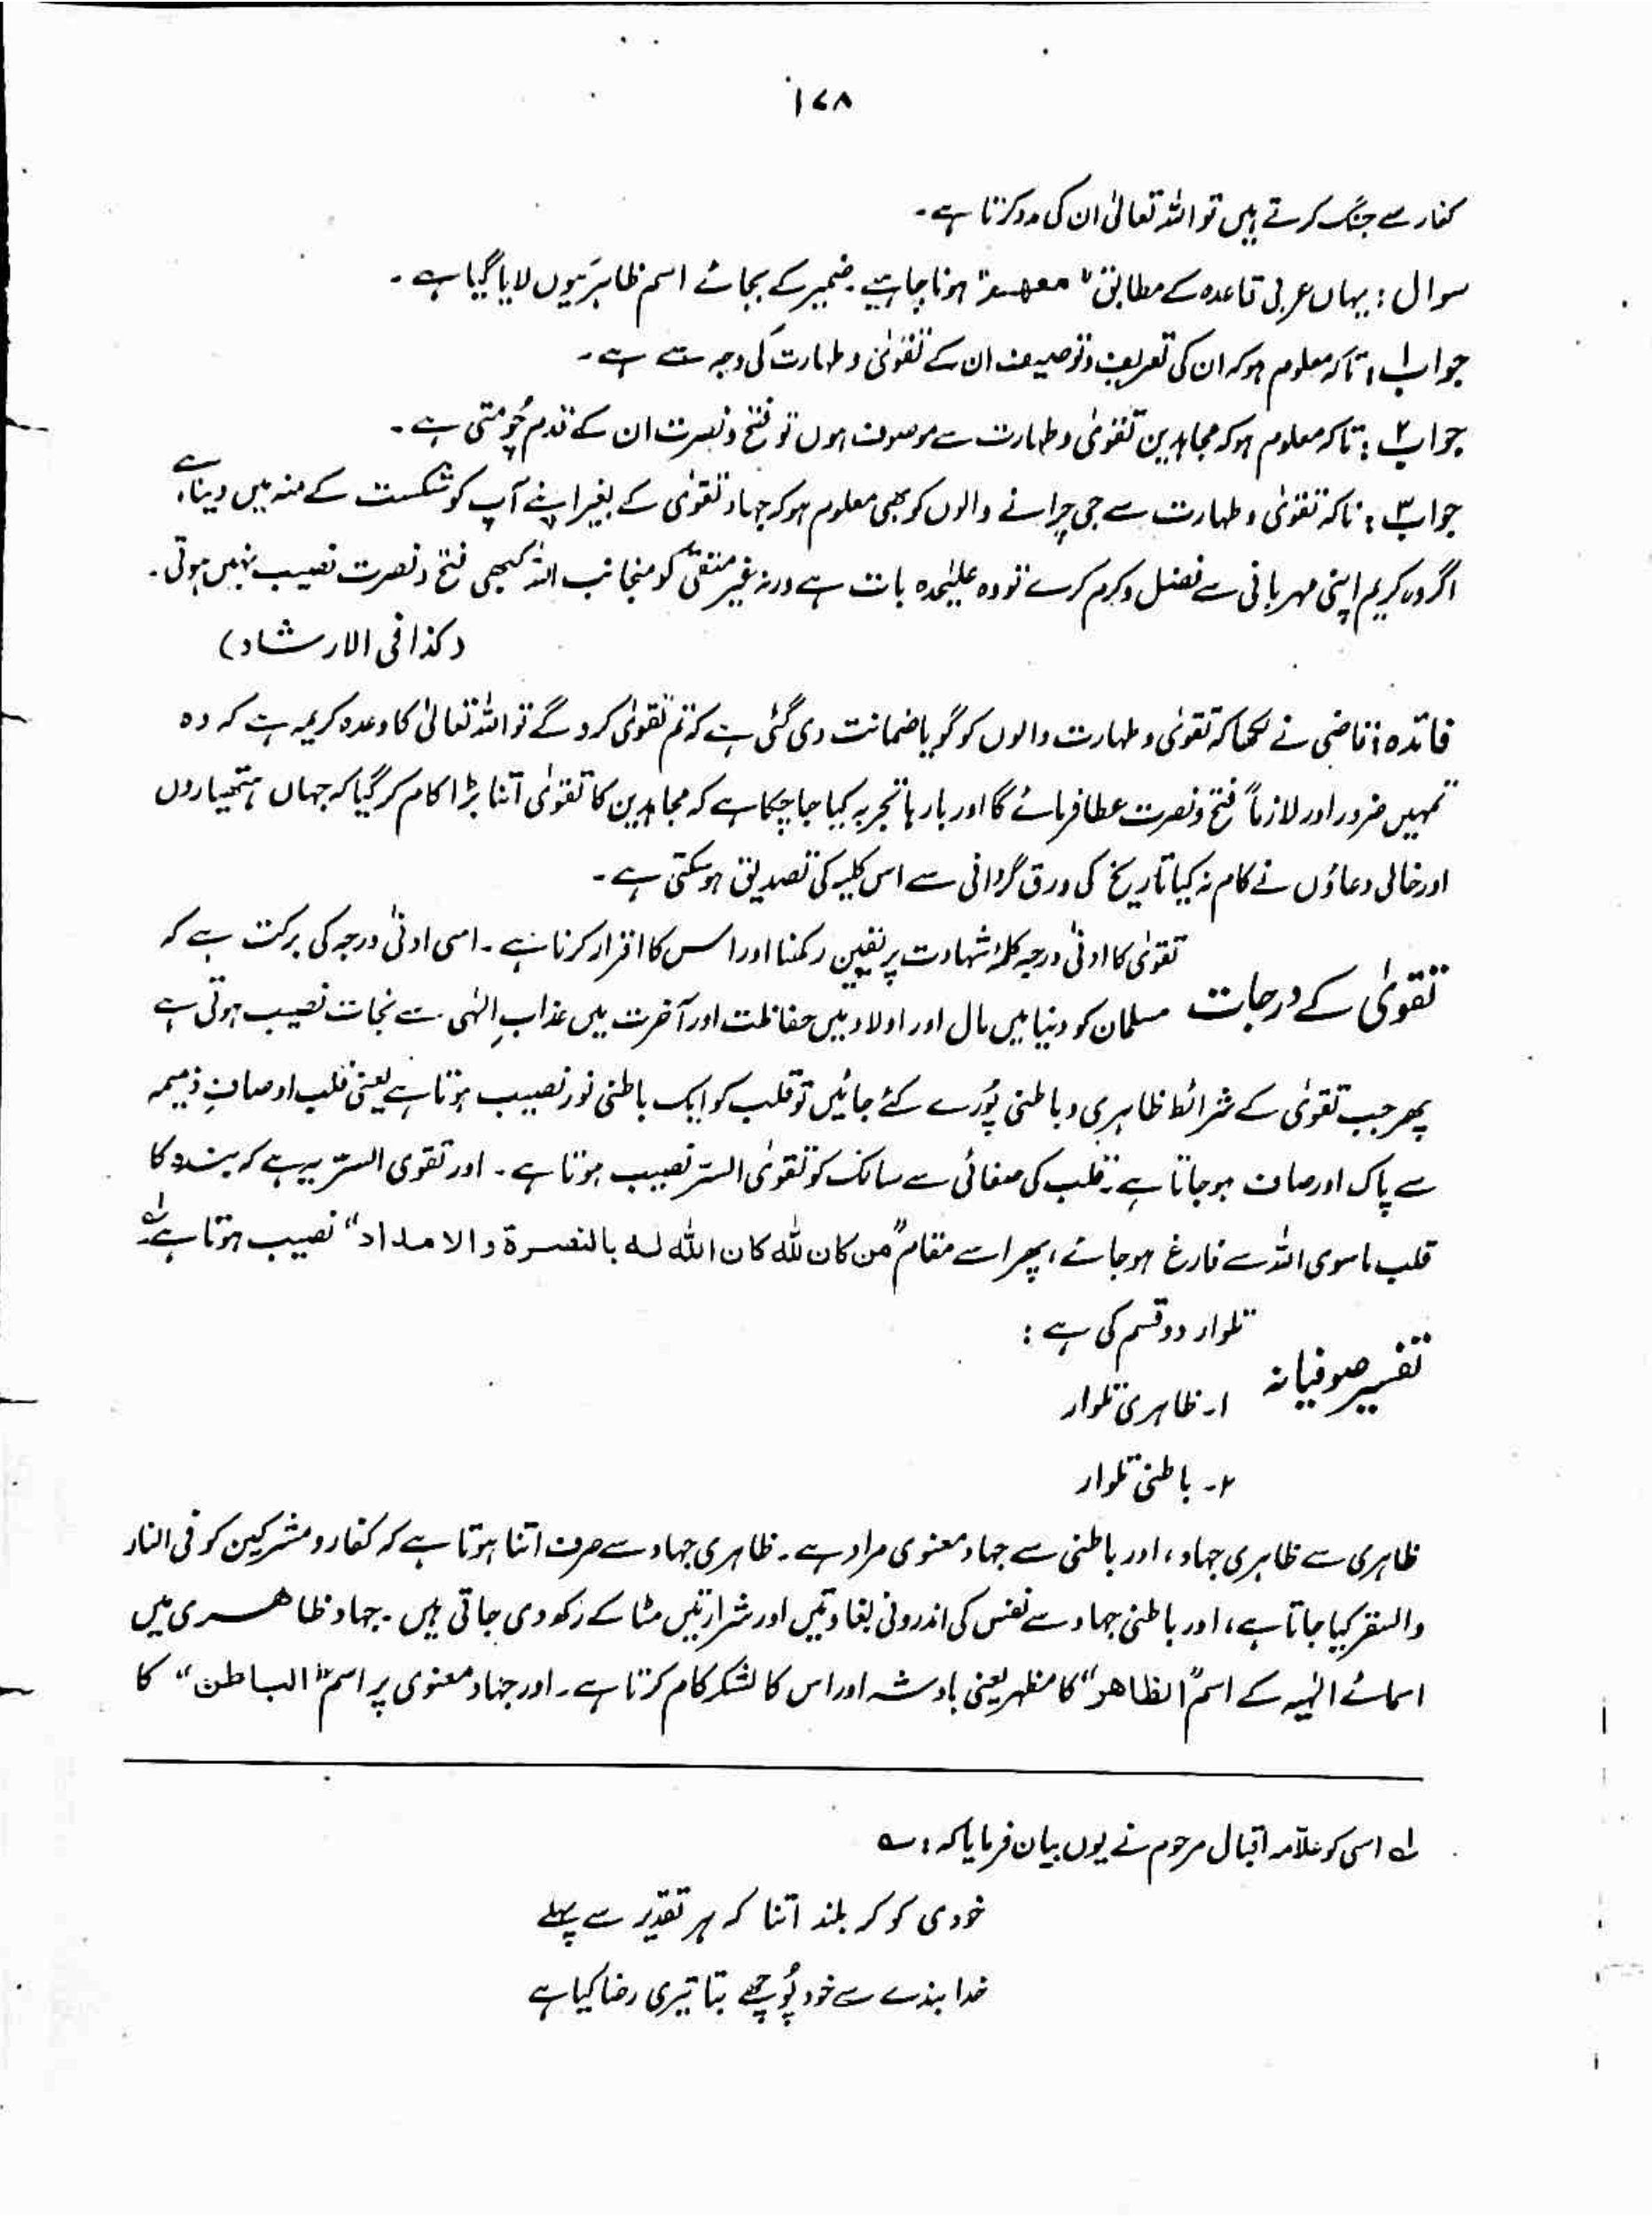 ۱۷۸
کفار سے جنگ کرتے ہیں تو اللہ تعالیٰ ان کی مدد کرتا ہے۔
سوال : یہاں عربی قاعدہ کے مطابق "معھم" ہونا چاہیے۔ ضمیر کے بجائے اسم ظاہر کیوں لایا گیا ہے۔
جواب ۱ : تاکہ معلوم ہو کہ ان کی تعریف و توصیف ان کے تقویٰ و طہارت کی وجہ سے ہے۔
جواب ۲ : تاکہ معلوم ہو کہ مجاہدین تقویٰ و طہارت سے موصوف ہوں تو فتح و نصرت ان کے قدم چُومتی ہے۔
جواب ۳ : تاکہ تقویٰ و طہارت سے جی چرانے والوں کو بھی معلوم ہو کہ جہاد تقویٰ کے بغیر اپنے آپ کو شکست کے منہ میں دینا ہے
اگر وہ کریم اپنی مہربانی سے فضل و کرم کرے تو وہ علیٰحدہ بات ہے ورنہ غیر متقی کو منجانب اللہ کبھی فتح و نصرت نصیب نہیں ہوتی۔
(کذا فی الارشاد)
فائدہ : قاضی نے لکھا کہ تقویٰ و طہارت والوں کو گویا ضمانت دی گئی ہے کہ تم تقویٰ کرو گے تو اللہ تعالیٰ کا وعدہ کریمہ ہے کہ وہ
تمہیں ضرور اور لازماً فتح و نصرت عطا فرمائے گا اور بارہا تجربہ کیا جا چکا ہے کہ مجاہدین کا تقویٰ اتنا بڑا کام کر گیا کہ جہاں ہتھیاروں
اور خالی دعاؤں نے کام نہ کیا تاریخ کی ورق گردانی سے اس کلیہ کی تصدیق ہو سکتی ہے۔
تقویٰ کے درجات
تقویٰ کا ادنیٰ درجہ کلمۂ شہادت پر یقین رکھنا اور اس کا اقرار کرنا ہے۔ اسی ادنیٰ درجہ کی برکت ہے کہ
مسلمان کو دنیا میں مال اور اولاد میں حفاظت اور آخرت میں عذابِ الٰہی سے نجات نصیب ہوتی ہے
پھر جب تقویٰ کے شرائط ظاہری و باطنی پُورے کئے جائیں تو قلب کو ایک باطنی نور نصیب ہوتا ہے یعنی قلب اوصافِ ذمیمہ
سے پاک اور صاف ہو جاتا ہے۔ قلب کی صفائی سے سالک کو تقویٰ السّر نصیب ہوتا ہے۔ اور تقوی السّر یہ ہے کہ بندہ کا
قلب ماسوی اللہ سے فارغ ہو جائے، پھر اسے مقام "من کان للہ کان اللہ لہ بالنصرة والامداد" نصیب ہوتا ہے ۱ے
تفسیر صوفیانہ
تلوار دو قسم کی ہے :
۱۔ ظاہری تلوار
۲۔ باطنی تلوار
ظاہری سے ظاہری جہاد، اور باطنی سے جہاد معنوی مراد ہے۔ ظاہری جہاد سے صرف اتنا ہوتا ہے کہ کفار و مشرکین کو فی النار
والسقر کیا جاتا ہے، اور باطنی جہاد سے نفس کی اندرونی بغاوتیں اور شرارتیں مٹا کے رکھ دی جاتی ہیں۔ جہاد ظاھری میں
اسمائے الٰہیہ کے اسم "الظاھر" کا مظہر یعنی بادشہ اور اس کا لشکر کام کرتا ہے۔ اور جہاد معنوی پر اسم "الباطن" کا
۱ے اسی کو علامہ اقبال مرحوم نے یوں بیان فرمایا کہ : ؎
خودی کو کر بلند اتنا کہ ہر تقدیر سے پہلے
خدا بندے سے خود پُوچھے بتا تیری رضا کیا ہے